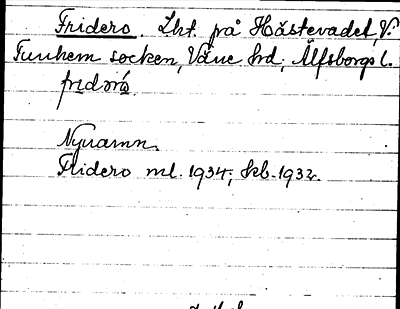 Fridero. Lht. på Hästevadet, V.
Tunhem socken, Väne hd, Älfsborgs l.
fridrò.
Nynamn.
Fridero ml. 1934, kb. 1932.